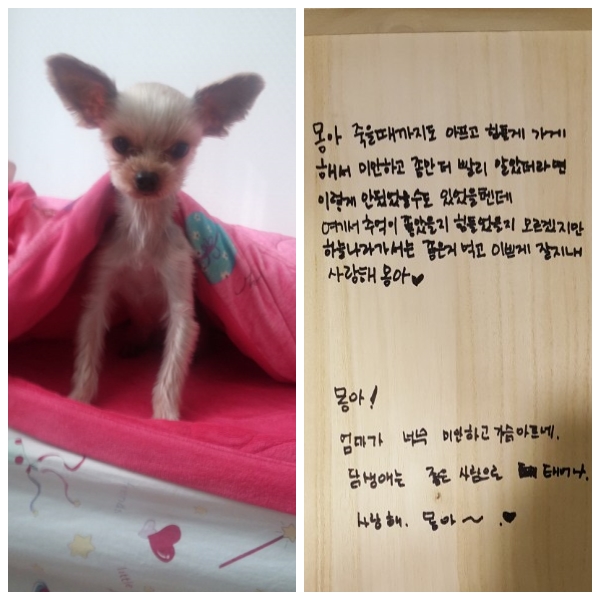 몽아 죽을때까지도 아프고 힘들게 가게
해서 미안하고 좀만 더 빨리 알았더라면
이렇게 안됬었을수도 있었을텐데
여기서 추억이 좋았을지 힘들었을지 모르겠지만
하늘나라가서는 좋은거 먹고 이쁘게 잘지내
사랑해 몽아♥
몽아!
엄마가 너무 미안하고 가슴아프네.
담생애는 좋은 사람으로 태어나.
사랑해. 몽아~ ♥